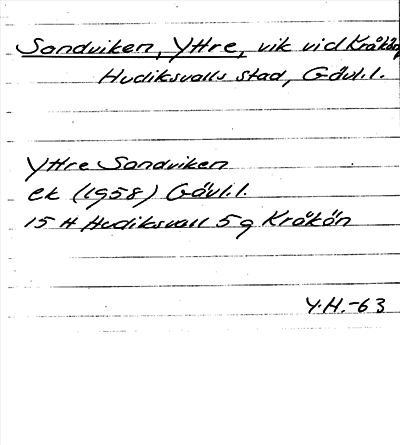 Sandviken, Yttre, vik vid Kråkön
Hudiksvalls stad, Gävl.l.
Yttre Sandviken
ek (1958) Gävl.l.
15 H Hudiksvall 5 g Kråkön
Y.H.-63